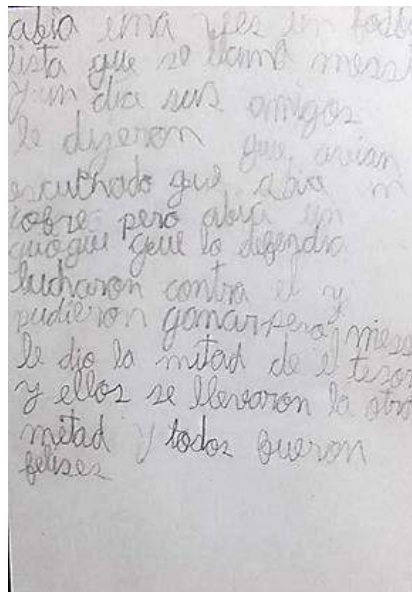 abia una ves un futbo
lista que se llama messi
y un dia sus amigos
le dijeron que avian
escuchado que abia un
cofre pero abia un
que lo defendia
lucharon contra el y
pudieron ganar pero messi
le dio la mitad de el tesor
y ellos se llevaron la otra
mitad y todos fueron
felises